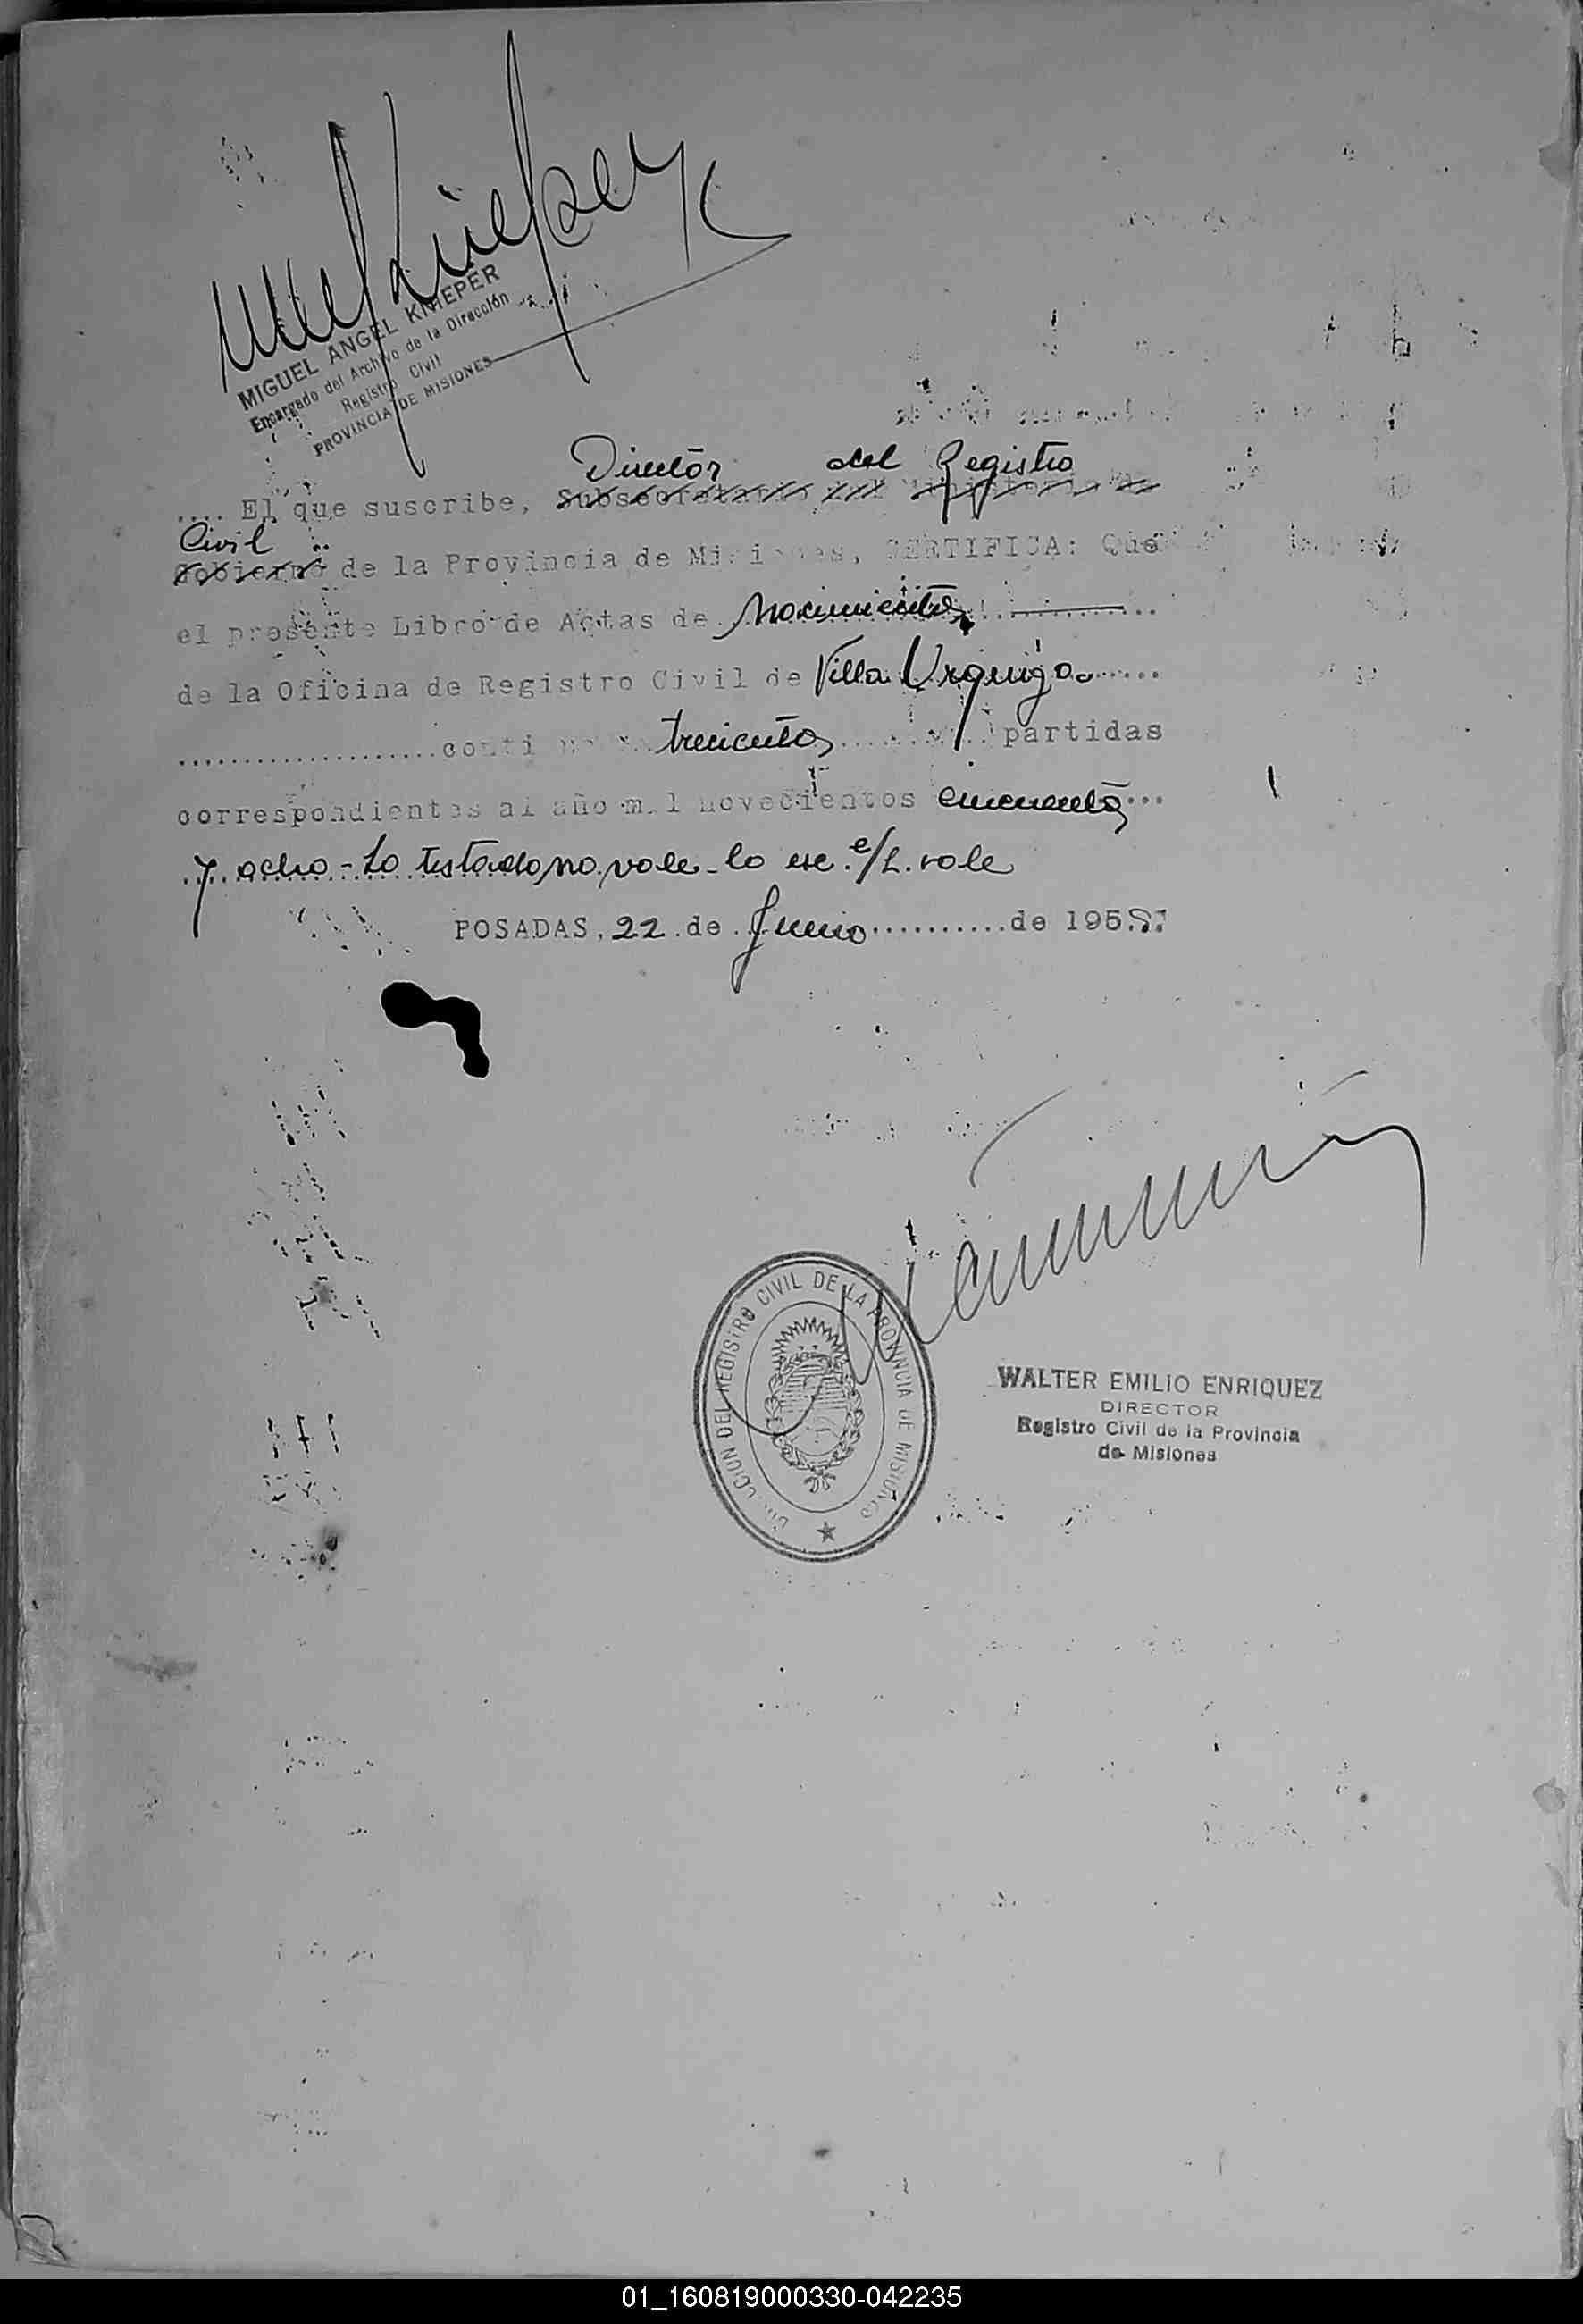 MIGUEL ANGEL KNIEPER
Encargado del Archivo de la Dirección
Registro Civil
PROVINCIA DE MISIONES
Directór del Registro
.... El que suscribe, Subsecretario del Ministerio de
Civil
Gobierno de la Provincia de Misiones, CERTIFICA: Que
el presente Libro de Actas de Nacimientos
de la Oficina de Registro Civil de Villa Urquiza
contiene trecientos partidas
correspondientes al año mil novecientos cincuenta
y ocho - Lo testado no vale - lo esc. e/L. vale
POSADAS, 22 de Junio de 1958
DIRECCION DEL REGISTRO CIVIL DE LA PROVINCIA DE MISIONES
WALTER EMILIO ENRIQUEZ
DIRECTOR
Registro Civil de la Provincia
de Misiones
01_160819000330-042235